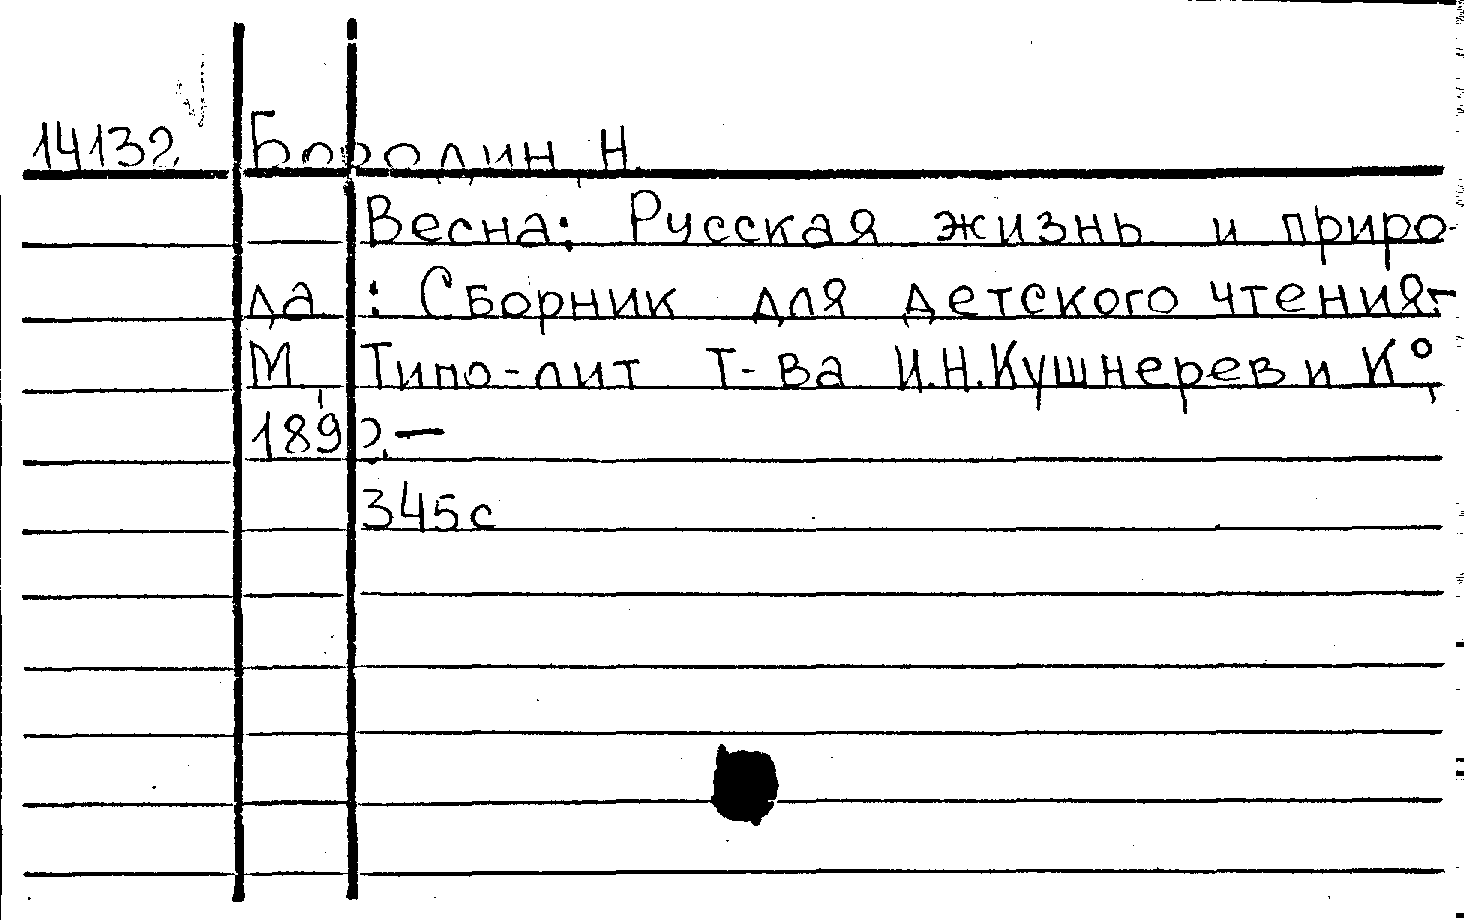 14132 Бородин, Н.
Весна: Русская жизнь и приро-
да : Сборник для детского чтения.-
М., Типо-лит Т-ва И.Н.Кушнерев и К°,
1892.—
345с